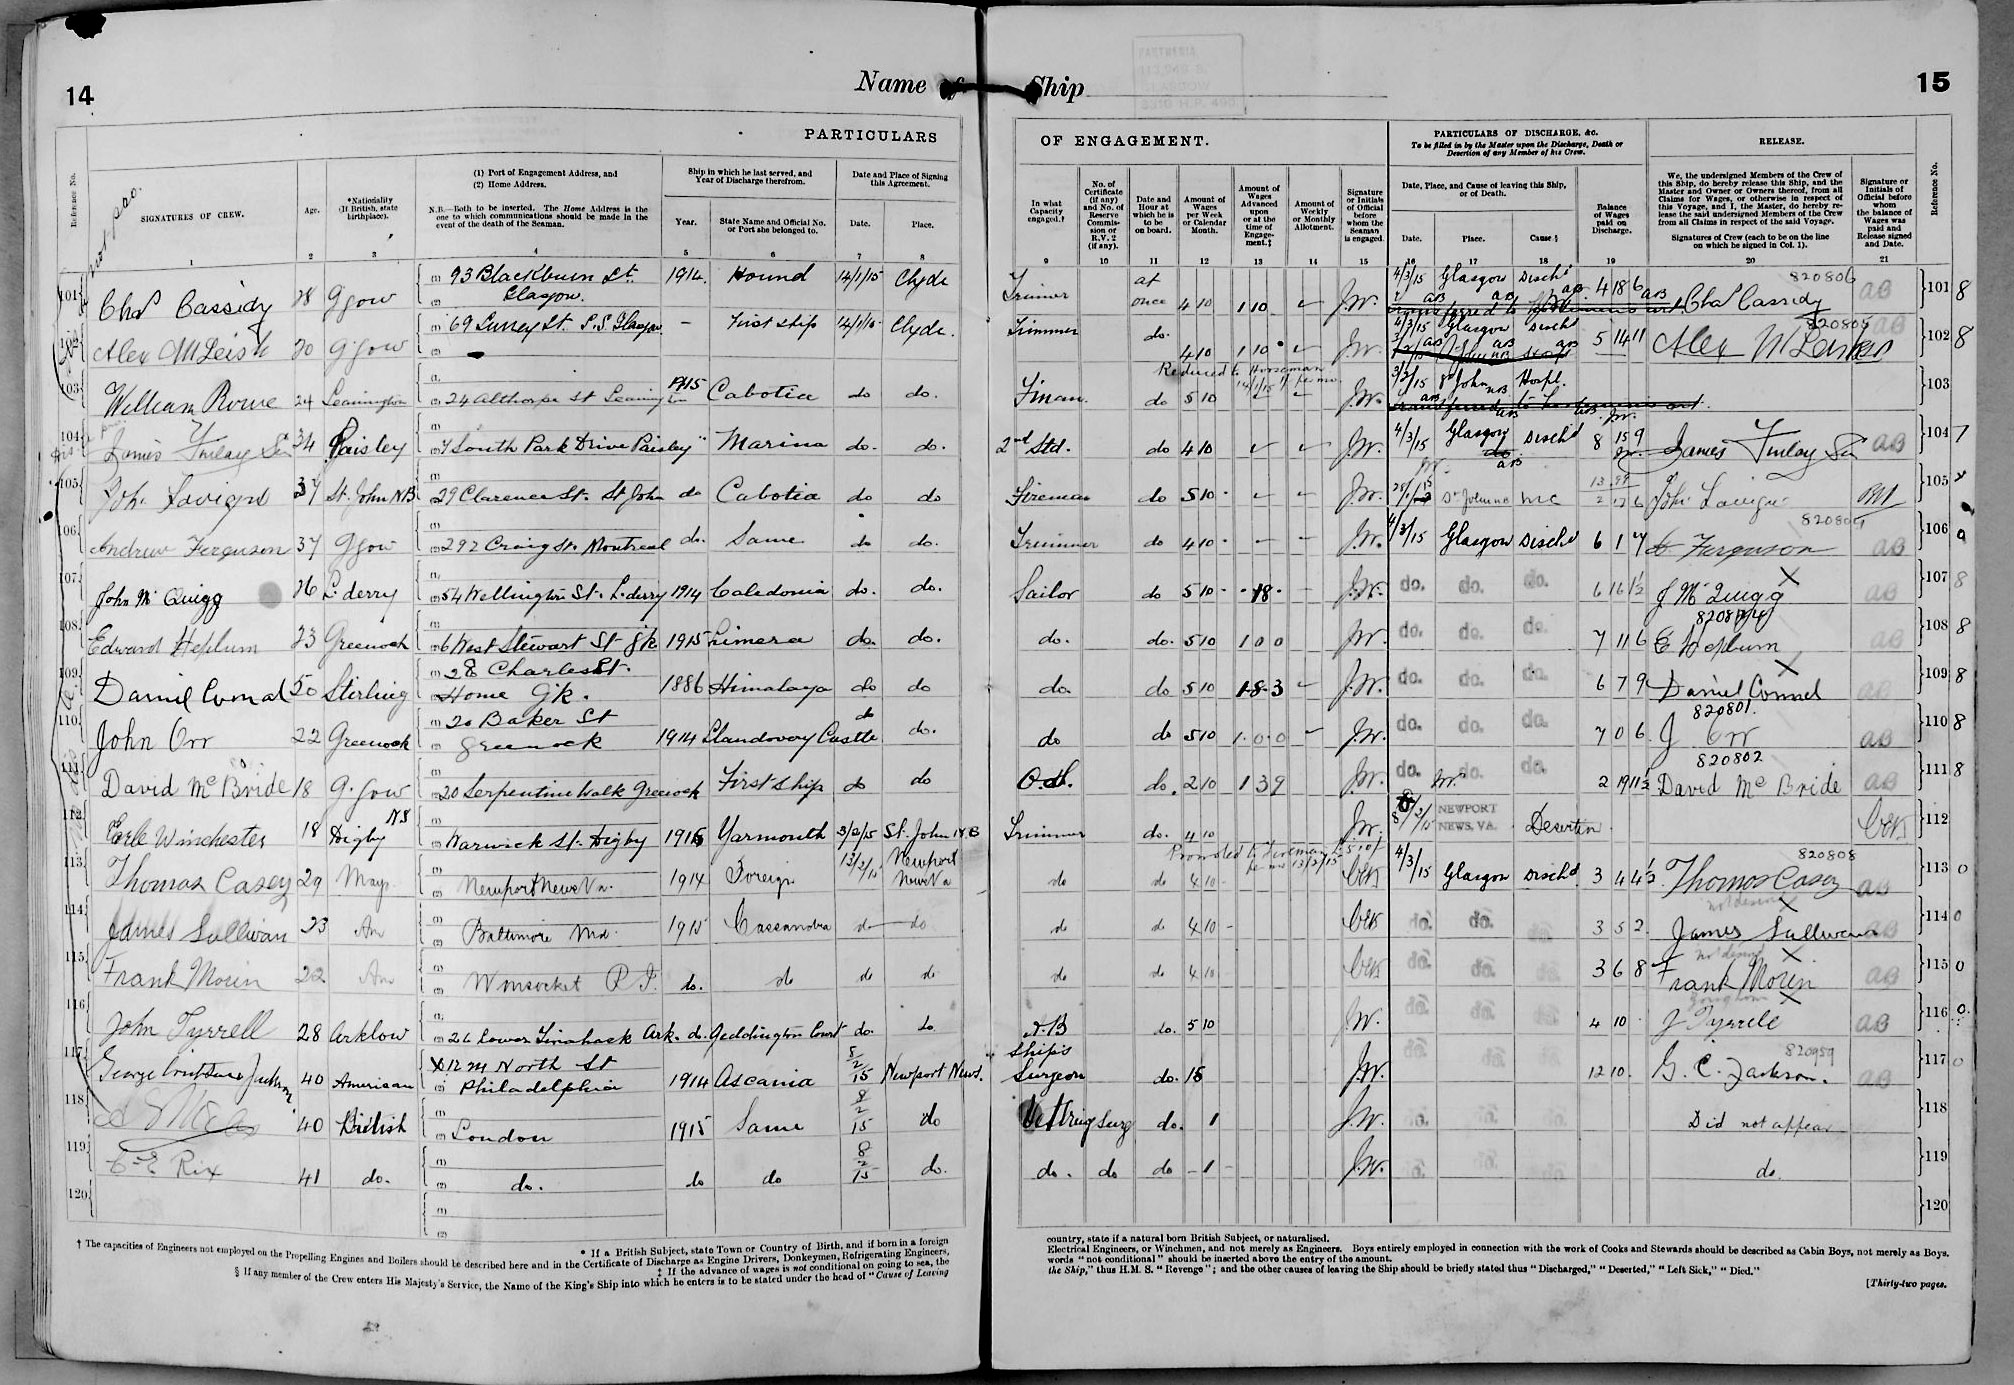 14
Name of Ship
15
PARTHENIA
GLASGOW
PARTICULARS OF ENGAGEMENT.
PARTICULARS OF DISCHARGE, &c.
To be filled in by the Master upon the Discharge, Death or Desertion of any Member of his Crew.
RELEASE.
Reference No.
SIGNATURES OF CREW.
Age.
*Nationality (If British, state birthplace).
(1) Port of Engagement Address, and
(2) Home Address.
N.B.—Both to be inserted. The Home Address is the one to which communications should be made in the event of the death of the Seaman.
Ship in which he last served, and Year of Discharge therefrom.
Year.
State Name and Official No. or Port she belonged to.
Date and Place of Signing this Agreement.
Date.
Place.
In what Capacity engaged.†
No. of Certificate (if any) and No. of Reserve Commission or R.V. 2 (if any).
Date and Hour at which he is to be on board.
Amount of Wages per Week or Calendar Month.
Amount of Wages Advanced upon or at the time of Engagement.‡
Amount of Weekly or Monthly Allotment.
Signature or Initials of Official before whom the Seaman is engaged.
Date, Place, and Cause of leaving this Ship, or of Death.
Date.
Place.
Cause §
Balance of Wages paid on Discharge.
We, the undersigned Members of the Crew of this Ship, do hereby release this Ship, and the Master and Owner or Owners thereof, from all Claims for Wages, or otherwise in respect of this Voyage, and I, the Master, do hereby release the said undersigned Members of the Crew from all Claims in respect of the said Voyage.
Signatures of Crew (each to be on the line on which he signed in Col. 1).
Signature or Initials of Official before whom the balance of Wages was paid and Release signed and Date.
Reference No.
1 2 3 4 5 6 7 8 9 10 11 12 13 14 15 16 17 18 19 20 21
101 Chas Cassidy 28 Ggow 93 Blackburn St. Glasgow. 1914. Hound 14/1/15 Clyde Trimmer at once 4 10 1 10 J.W. 4/3/15 Glasgow Disch'd 4 18 6 Chas Cassidy 820806 aB 101 8
102 Alex McLeish 20 Ggow 69 Surrey St. S.S. Glasgow — First ship 14/1/15 Clyde. Trimmer do. 4 10 1 10 J.W. 4/3/15 Glasgow Disch'd 5 14 11 820805 Alex McLeish aB 102 8
Reduced to
103 William Rowe 24 Leamington 24 Althorpe St Leamington 1915 Cabotia do do. Fireman. do 5 10 J.W. 3/2/15 St John NB Hospl. 103
104 James Finlay Sr 34 Paisley 7 South Park Drive Paisley " Marina do. do. 2nd Std. do 4 10 J.W. 4/3/15 Glasgow Disch'd 8 15 9 James Finlay Sr aB 104 7
105 37 St. John NB 29 Clarence St. St John do Cabotia do do Fireman do 5 10 J.W. St John NB 105
106 Andrew Ferguson 37 Ggow 292 Craig St. Montreal do. Same do do. Trimmer do 4 10 J.W. 4/3/15 Glasgow Disch'd 6 1 7 A Ferguson aB 106 9
107 John McQuigg 26 L. derry 54 Wellington St. L. derry 1914 Caledonia do. do. Sailor do 5 10 18 J.W. do. do. do. 6 16 1½ J McQuigg X aB 107 8
108 Edward Hepburn 23 Greenock 6 West Stewart St Gk 1915 do. do. do. do. 5 10 1 0 0 J.W. do. do. do. 7 11 6 E Hepburn aB 108 8
109 Daniel Connal 50 Stirling 28 Charles St. Home Gk. 1886 Himalaya do do do. do 5 10 1-8-3 J.W. do. do. do. 6 7 9 Daniel Connal X aB 109 8
110 John Orr 22 Greenock 20 Baker St Greenock 1914 Llandovery Castle do do. do do 5 10 1-0-0 J.W. do. do. do. 7 0 6 820801 J Orr aB 110 8
111 David McBride 18 G.gow 20 Serpentine Walk Greenock First Ship do do O.S. do. 2 10 1 3 9 J.W. do. do. do. 2 19 11½ 820802 David McBride aB 111 8
112 Earle Winchester 18 Digby NS Warwick St. Digby 1915 Yarmouth 3/2/15 St. John NB Trimmer do. 4 10 J.W. NEWPORT NEWS, VA. Desertion 112
Promoted to Fireman 13/2/15
113 Thomas Casey 29 Mayo Newport News Va. 1914 Foreign 13/2/15 Newport News Va do do 4 10 4/3/15 Glasgow Disch'd 3 4 4½ 820808 Thomas Casey aB 113 0
114 James Sullivan 23 Am Baltimore Md. 1915 Cassandra do do do do 4 10 do. do. do. 3 5 2 James Sullivan X aB 114 0
115 Frank Morin 22 Am Woonsocket R I. do. do do do do do 4 10 do. do. do. 3 6 8 Frank Morin X aB 115 0
116 John Tyrrell 28 Arklow 26 Lower Tinahask Ark. do. Geddington Court do. do A.B do. 5 10 J.W. do. do. do. 4 10 J Tyrrell X aB 116 0
117 George Jackson 40 American 12 N North St Philadelphia 1914 Ascania 8/2/15 Newport News. Ships Surgeon do. 15 J.W. do. do. do. 12 10 820959 G. C. Jackson. aB 117 0
118 40 British London 1915 Same 8/2/15 do Vet Surg do. 1 J.W. do. do. do. Did not appear 118
119 Rix 41 do. do. do do 8/2/15 do. do. do do 1 J.W. do. do. do. do. 119
120 120
† The capacities of Engineers not employed on the Propelling Engines and Boilers should be described here and in the Certificate of Discharge as Engine Drivers, Donkeymen, Refrigerating Engineers,
* If a British Subject, state Town or Country of Birth, and if born in a foreign
‡ If the advance of wages is not conditional on going to sea, the
§ If any member of the Crew enters His Majesty's Service, the Name of the King's Ship into which he enters is to be stated under the head of "Cause of Leaving
country, state if a natural born British Subject, or naturalised.
Electrical Engineers, or Winchmen, and not merely as Engineers. Boys entirely employed in connection with the work of Cooks and Stewards should be described as Cabin Boys, not merely as Boys.
words "not conditional" should be inserted above the entry of the amount.
the Ship," thus H.M. S. "Revenge"; and the other causes of leaving the Ship should be briefly stated thus "Discharged," "Deserted," "Left Sick," "Died."
[Thirty-two pages.